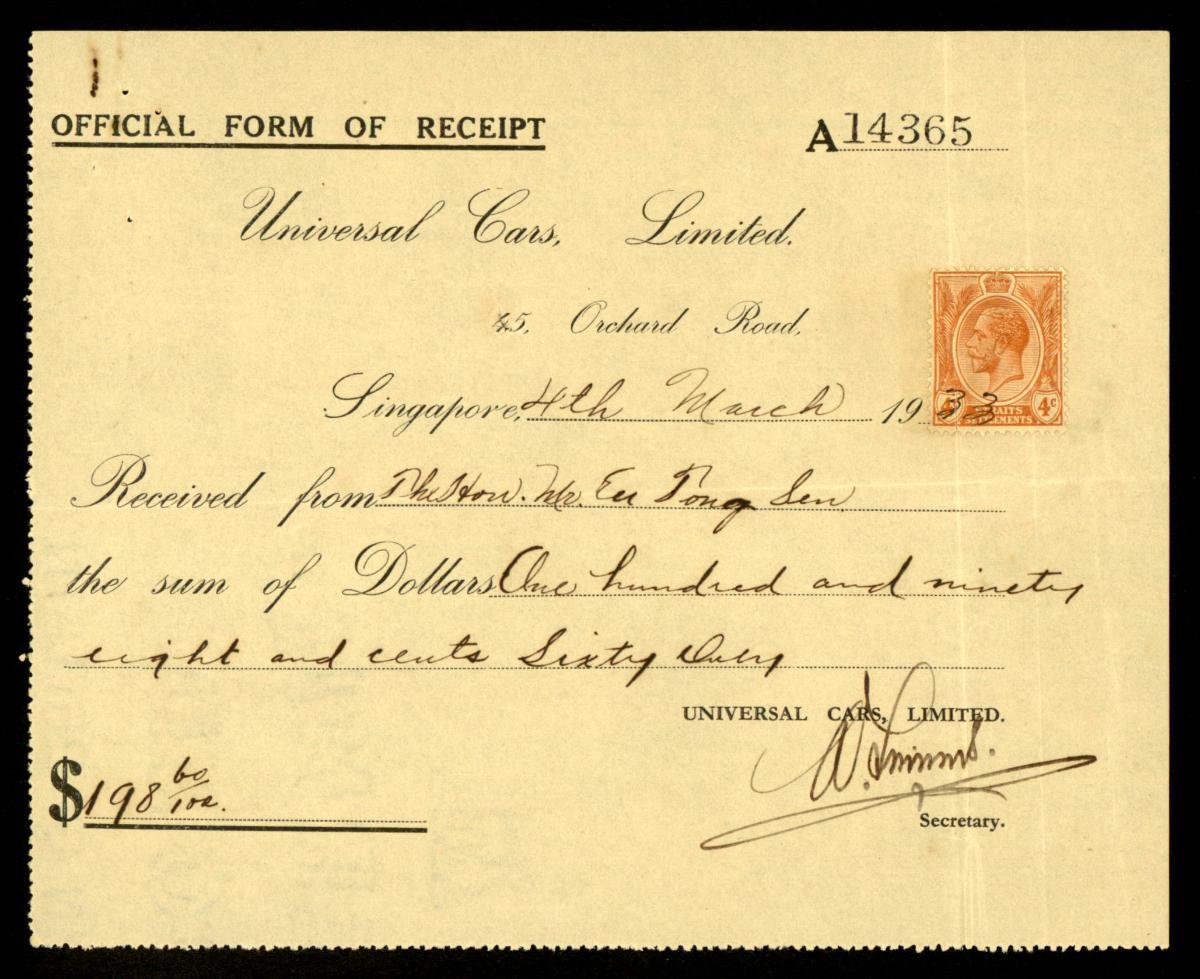 OFFICIAL FORM OF RECEIPT
A 14365
Universal Cars, Limited.
45, Orchard Road,
Singapore, 4th March 1933
4c STRAITS SETTLEMENTS 4c
Received from The Hon. Mr. Eu Tong Sen
the sum of Dollars One hundred and ninety
eight and cents Sixty Only
UNIVERSAL CARS, LIMITED.
$198 60/100.
Secretary.